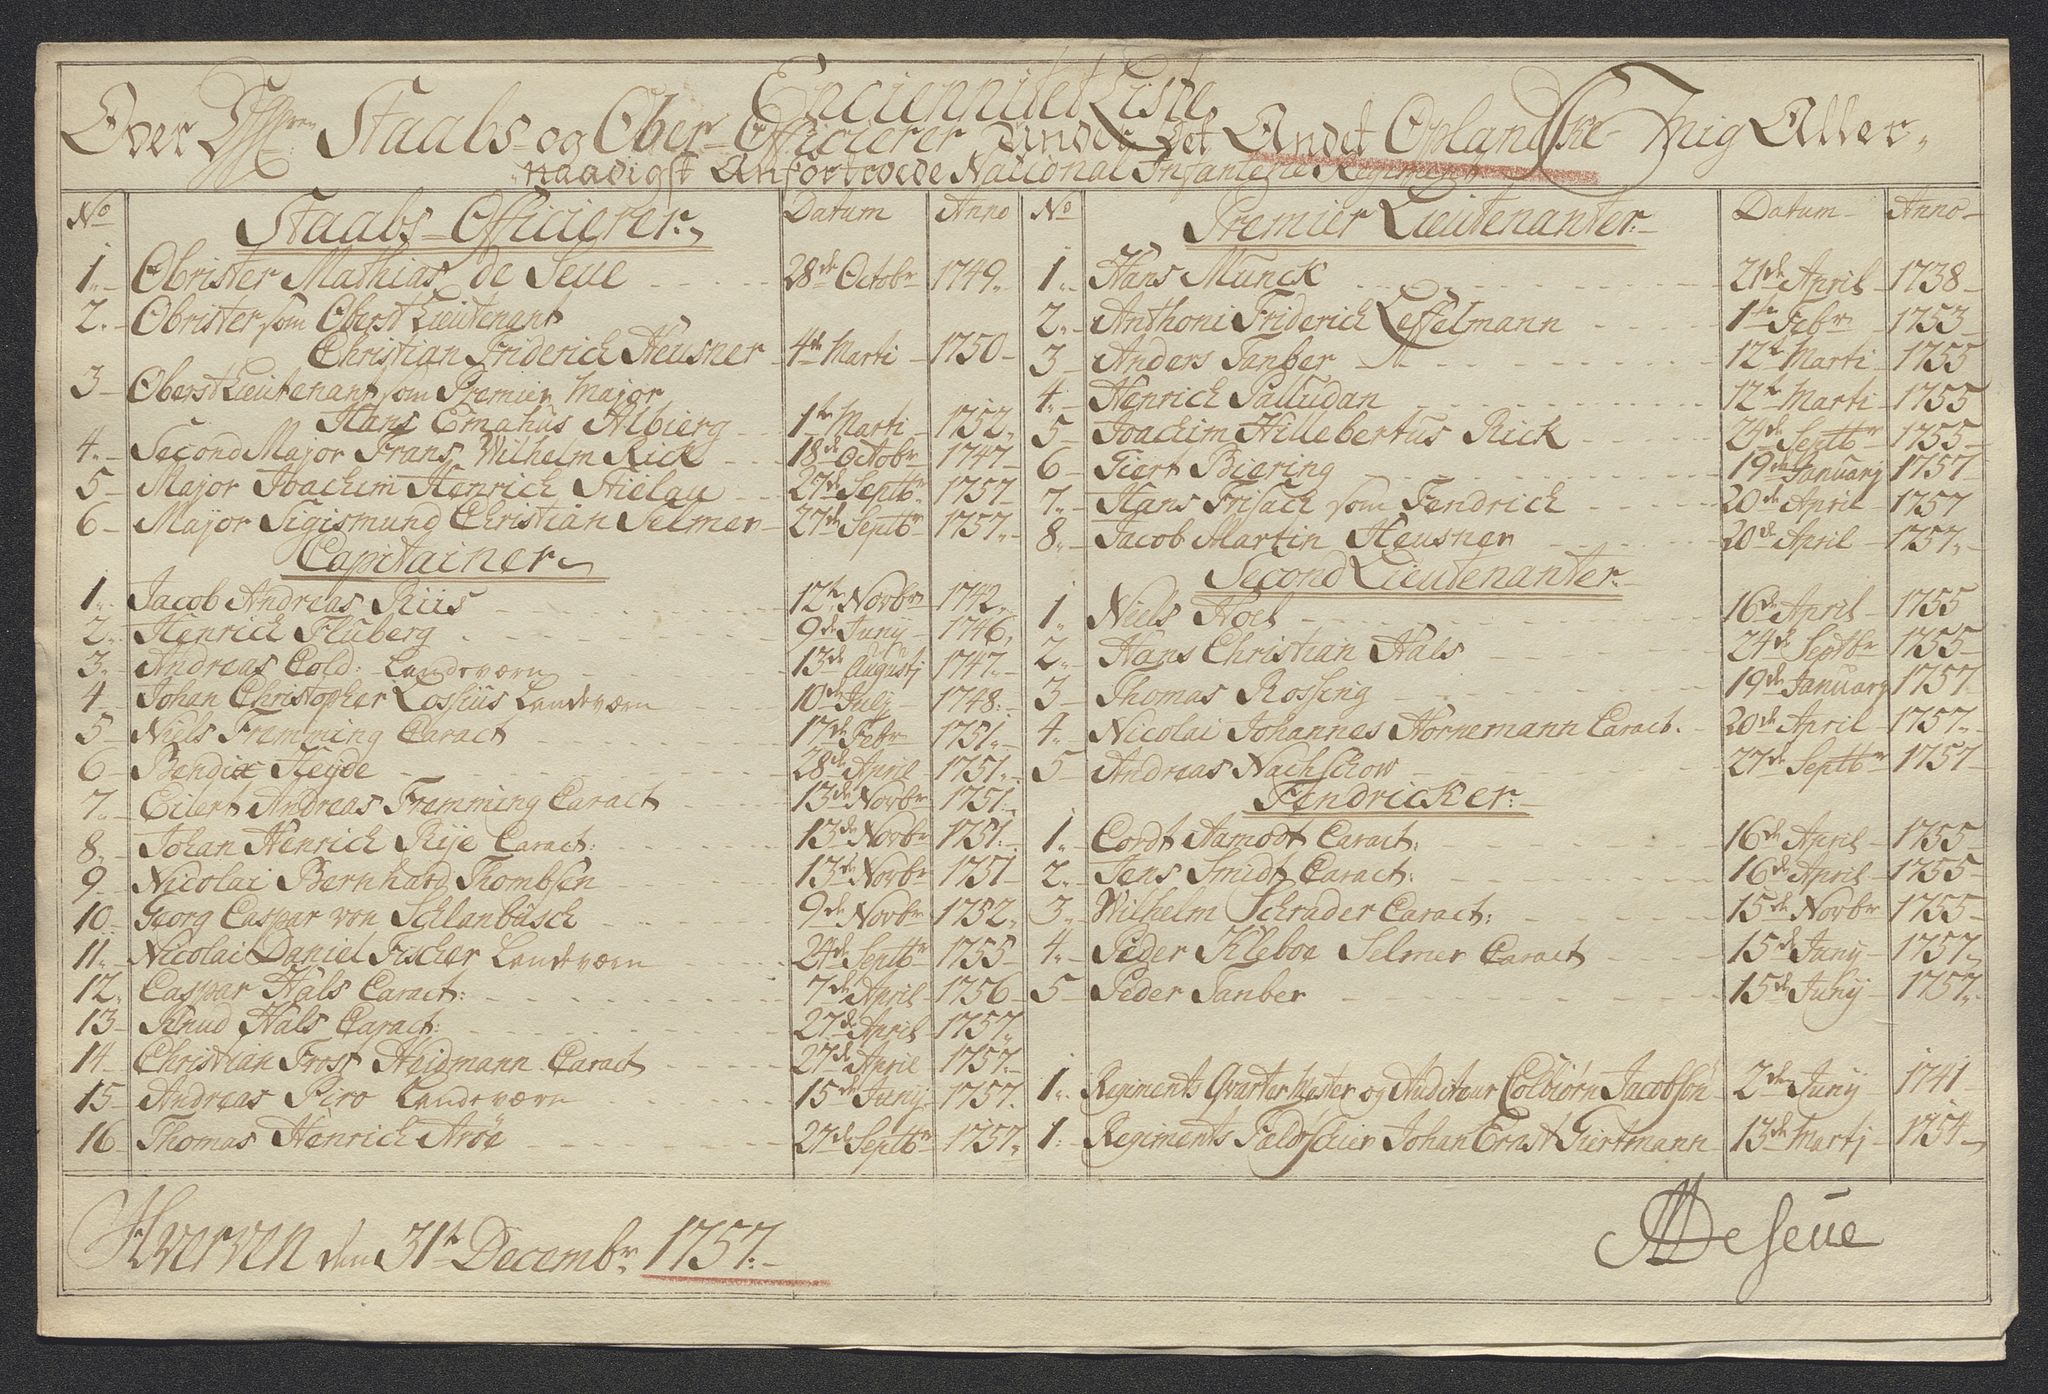 Enciennitet Liste
Over Staabs- og Ober-Officierer Under Det Andet Oplandske Mig Aller-
naadigst Anfortroede National Infanterie Regiment
No Staabs-Officierer Datum Anno
1. Obrister Mathias de Seue 28de Octobr 1749
2. Obrister som Oberst Lieutenant
Christian Friderich Heusner 4de Marti 1750
3 Oberst Lieutenant som Premier Major
Hans Emahus Albierg 1te Marti 1752
4. Second Major Frans Wilhelm Rick 18de Octobr 1747
5 Major Joachim Henrich Stielau 27de Septbr 1757
6 Major Sigismund Christian Selmer 27de Septbr 1757
Capitainer
1. Jacob Andreas Riis 12te Novbr 1742
2. Henrich Fluberg 9de Junij 1746
3. Andreas Cold: Landeværn 13de Augustj 1747
4 Johan Christopher Lossius Landeværn 10de Julj 1748
5 Niels Fremming Caract 17de Febr 1751
6 Bendix Heyde 28de April 1751
7. Eilert Andreas Fremming Caract 13de Novbr 1751
8. Johan Henrich Rije Caract: 13de Novbr 1751
9 Nicolai Bernhard Thombsen 13de Novbr 1751
10 Georg Caspar von Schlanbusch 9de Novbr 1752
11. Nicolai Daniel Fischer Landeværn 24de Septbr 1755
12. Caspar Hals Caract: 7de April 1756
13 Knud Hals Caract: 27de April 1757
14 Christian Frost Heidmann Caract 27de April 1757
15 Andreas Piro Landeværn 15de Junij 1757
16 Thomas Henrich Arøe 27de Septbr 1757
No Premier Lieutenanter Datum Anno
1. Hans Munck 21de April 1738
2. Anthoni Friderich Leffelmann 1te Febr 1753
3 Anders Tanber 12te Marti 1755
4. Henrich Palludan 12te Marti 1755
5 Joachim Hillebertus Rick 24de Septbr 1755
6 Giert Biering 19de Januarj 1757
7. Hans Frisack som Fendrich 20de April 1757
8. Jacob Martin Heusner 20de April 1757
Second Lieutenanter
1. Niels Hoel 16de April 1755
2. Hans Christian Hals 24de Septbr 1755
3 Thomas Rossing 19de Januarj 1757
4. Nicolai Johannes Hornemann Caract. 20de April 1757
5 Andreas Nachschow 27de Septbr 1757
Fendricker
1. Cordt Aamodt Caract: 16de April 1755
2. Jens Smidt Caract: 16de April 1755
3. Wilhelm Schrader Caract: 15de Novbr 1755
4. Peder Kleboe Selmer Caract 15de Junij 1757
5 Peder Tanber 15de Junij 1757
1. Regiments Qvarter Mester og Auditeur Colbiørn Jacobsøn 2de Junij 1741
1. Regiments Feldtschier Johan Ernst Giertmann 13de Martj 1754
Hverven den 31te Decembr 1757.
MDeSeue